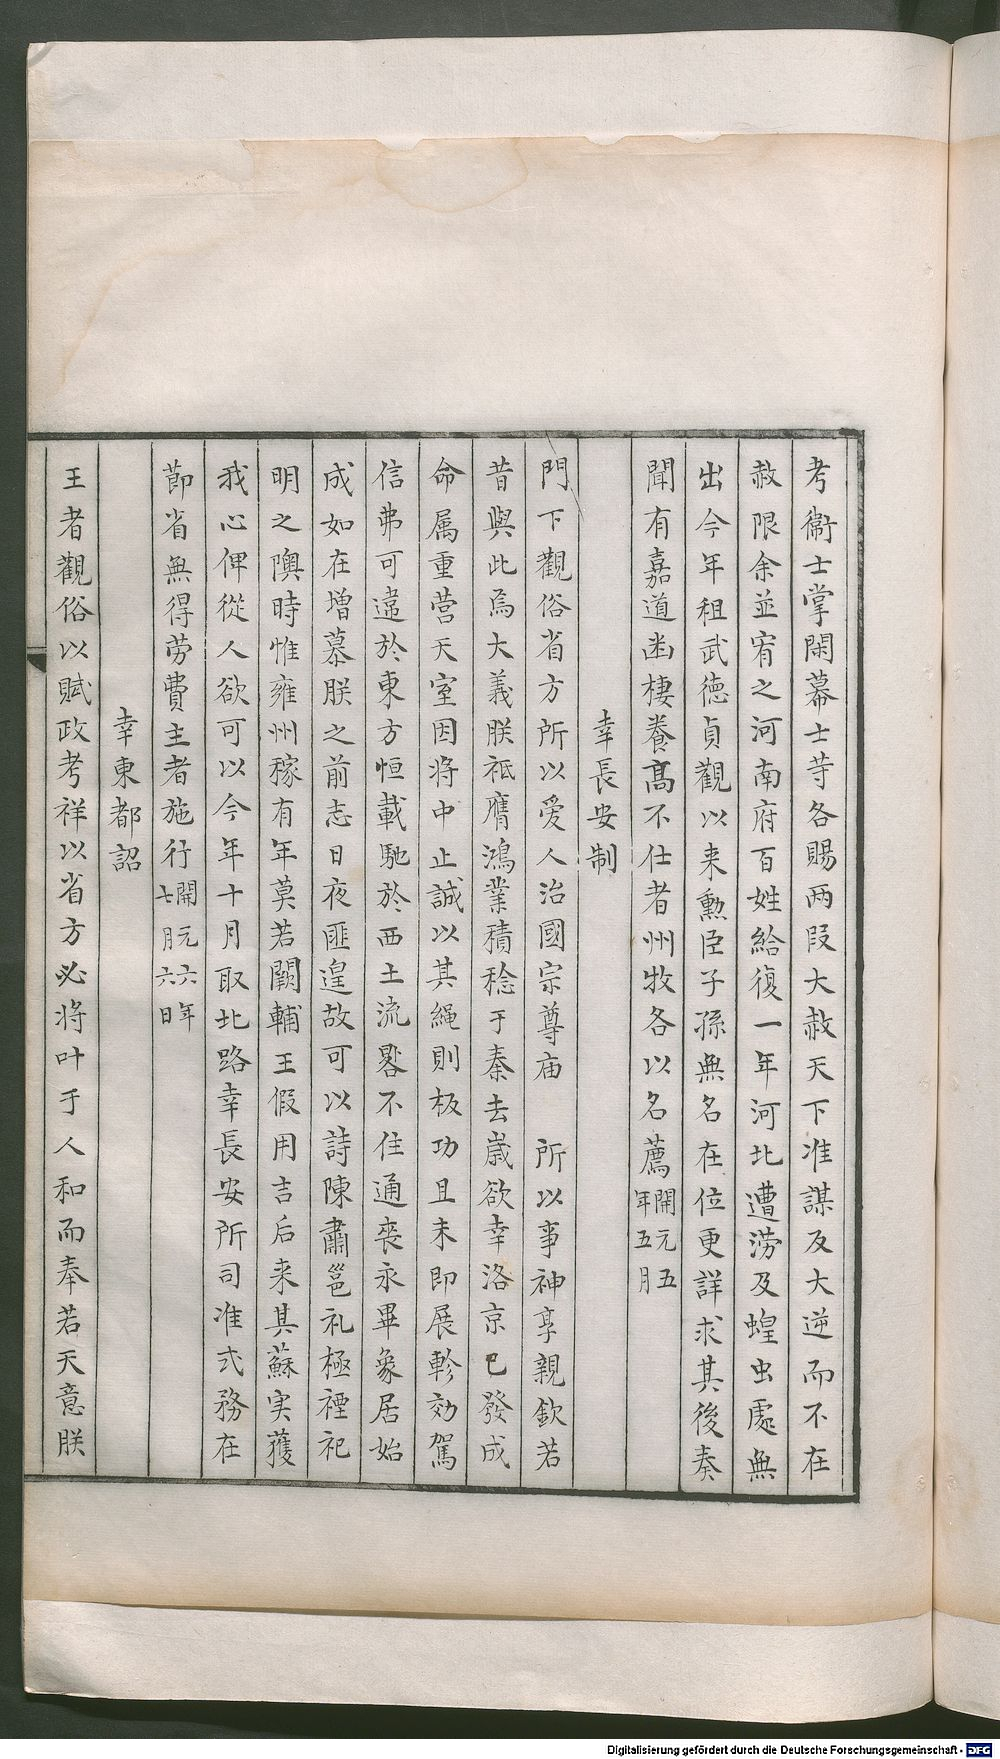 考衞士掌閑幕士等各賜两叚大赦天下准謀反大逆而不在
赦限余並宥之河南府百姓給復一年河北遭澇及蝗虫處無
出今年租武德貞觀以来勲臣子孫無名在位更詳求其後奏
聞有嘉道幽棲養髙不仕者州牧各以名薦開元五年五月
幸長安制
門下觀俗省方所以爱人治國宗尊庙　所以事神享親欽若
昔與此為大義朕祗膺鴻業積稔于秦去歳欲幸洛京已發成
命属重营天室因将中止誠以其繩則板功且未即展軫効駕
信弗可違於東方恒載馳於西土流晷不住通喪永畢象居始
成如在增慕朕之前志日夜匪遑故可以詩陳肅邕礼極禋祀
明之隩時惟雍州稼有年莫若闗輔王假用吉后来其蘇实獲
我心俾從人欲可以今年十月取北路幸長安所司准式務在
節省無得劳費主者施行開元六年七月六日
幸東都詔
王者觀俗以賦政考祥以省方必将叶于人和而奉若天意朕
Digitalisierung gefördert durch die Deutsche Forschungsgemeinschaft - DFG